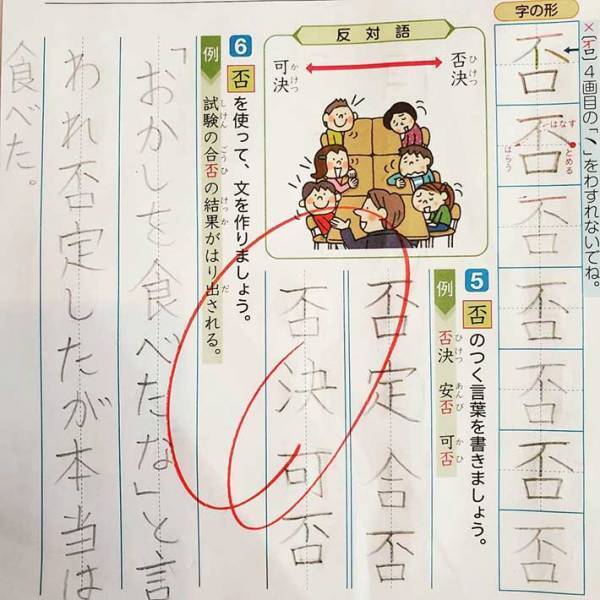 字の形
×[否]4画目の「丶」をわすれないでね。
否
否
はなす
とめる
はらう
否
否
否
否
否
反対語
否決
ひけつ
可決
かけつ
5 否のつく言葉を書きましょう。
例 否決 安否 可否
ひけつ あんぴ かひ
否定 合否
否決 可否
6 否を使って、文を作りましょう。
例 試験の合否の結果がはり出される。
しけん ごうひ けっか だ
「おかしを食べたな」と言
われ否定したが本当は
食べた。